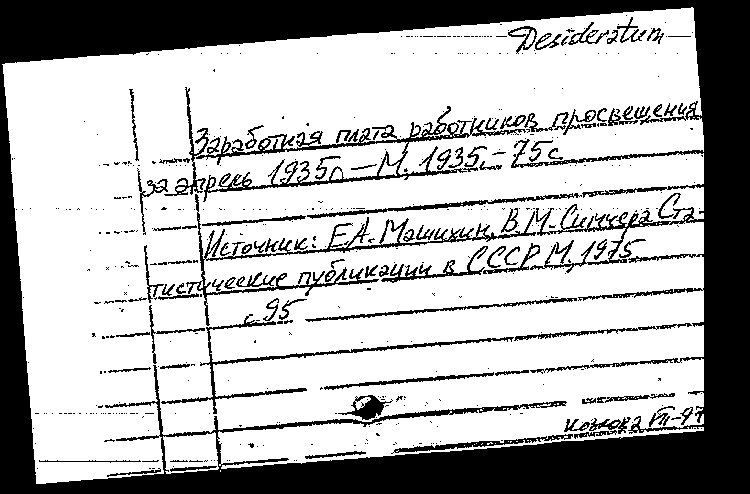 Desideratum
Заработная плата работников просвещения
за апрель 1935г. — М, 1935. — 75с
Источник: Е.А. Машихин, В.М. Симчера Ста-
тистические публикации в СССР М, 1975
с 95
Козлова VII-97